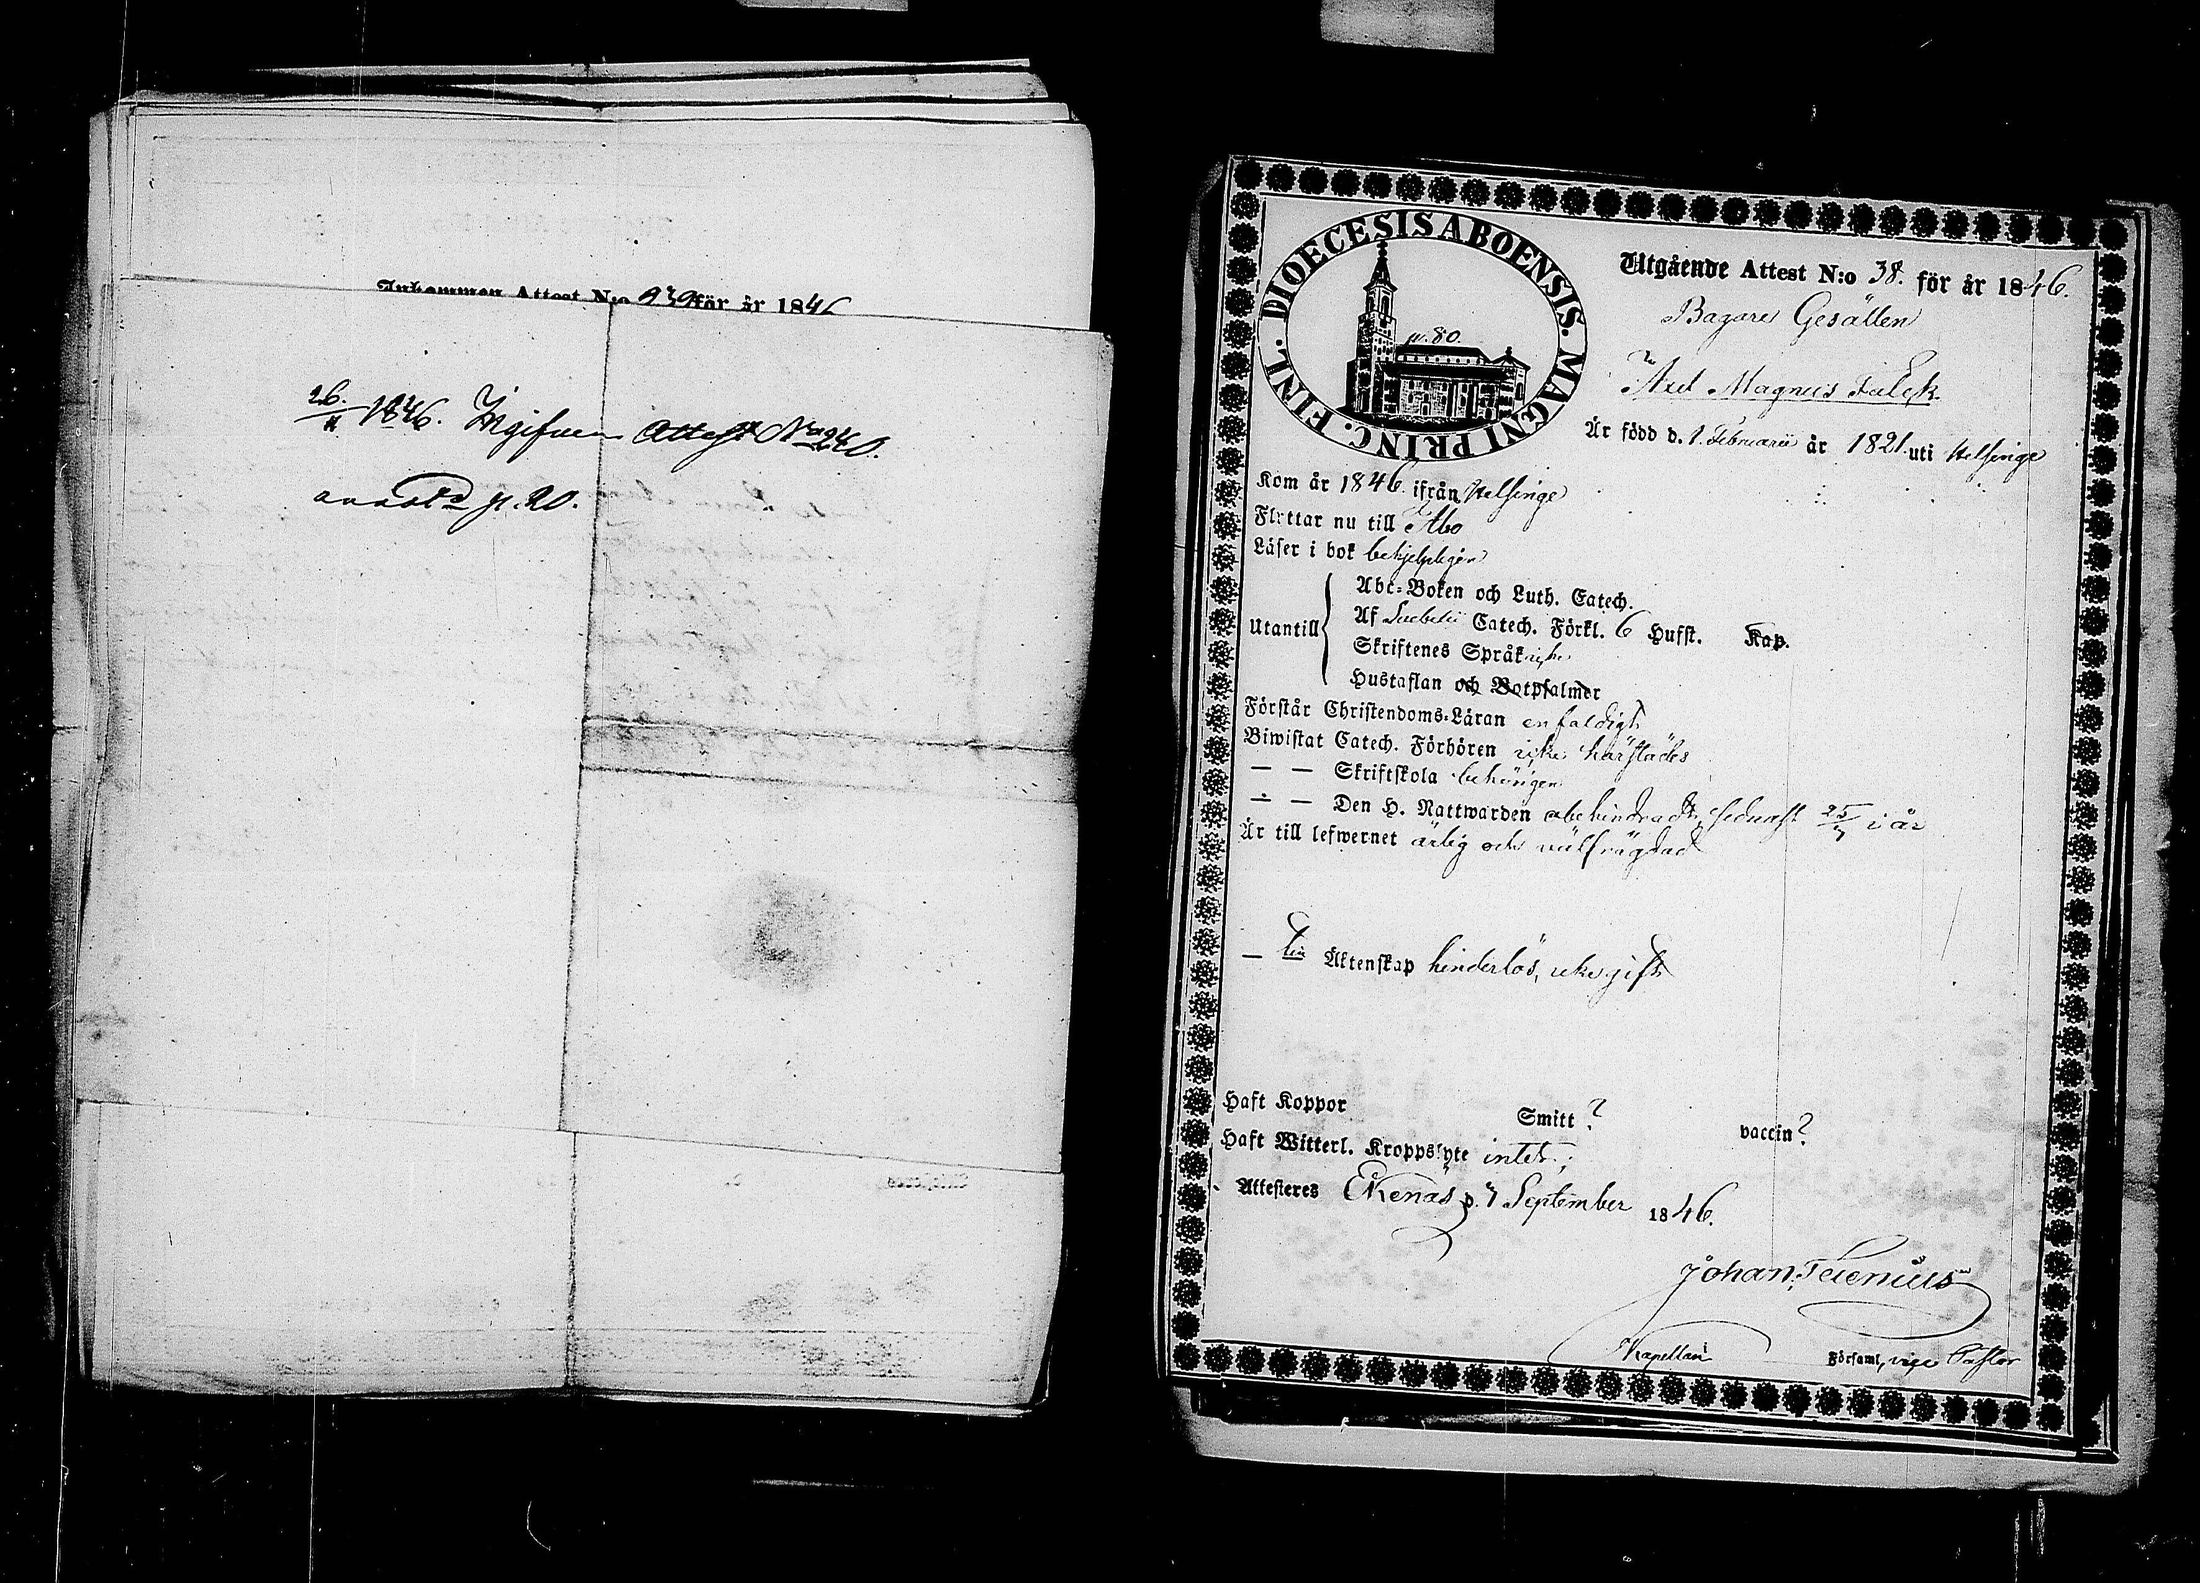 Inkommen Attest N:o 239 för år 1846
26./11 1846. Ingifven Attest No 240.
p. 20.
DIOECESIS ABOENSIS. MAGNI PRINC. FINL.
p. 80.
Utgående Attest N:o 38. för år 1846.
Bagare Gesällen
Axel Magnus Falck.
Är född d. 1. Februarii år 1821. uti Helsinge
Kom år 1846. ifrån Helsinge
Flyttar nu till Åbo
Läser i bok behjelpligen
Utantill
Abc-Boken och Luth. Catech.
Af Svebelii Catech. Förkl. 6 Hufst. Kap.
Skriftenes Språk icke
Hustaflan och Botpsalmer
Förstår Christendoms-Läran enfaldigt
Biwistat Catech. Förhören icke härstädes
— — Skriftskola behörigen
— — Den H. Nattwarden obehindradt, sednast 25/7 i år
Är till lefwernet ärlig och välfrägdad
— till Äktenskap hinderlös, icke gift
Haft Koppor Smitt? vaccin?
Haft Witterl. Kroppslyte intet;
Attesteras Ekenäs d. 7 September 1846.
Johan
Kapellan Församl. vice Pastor